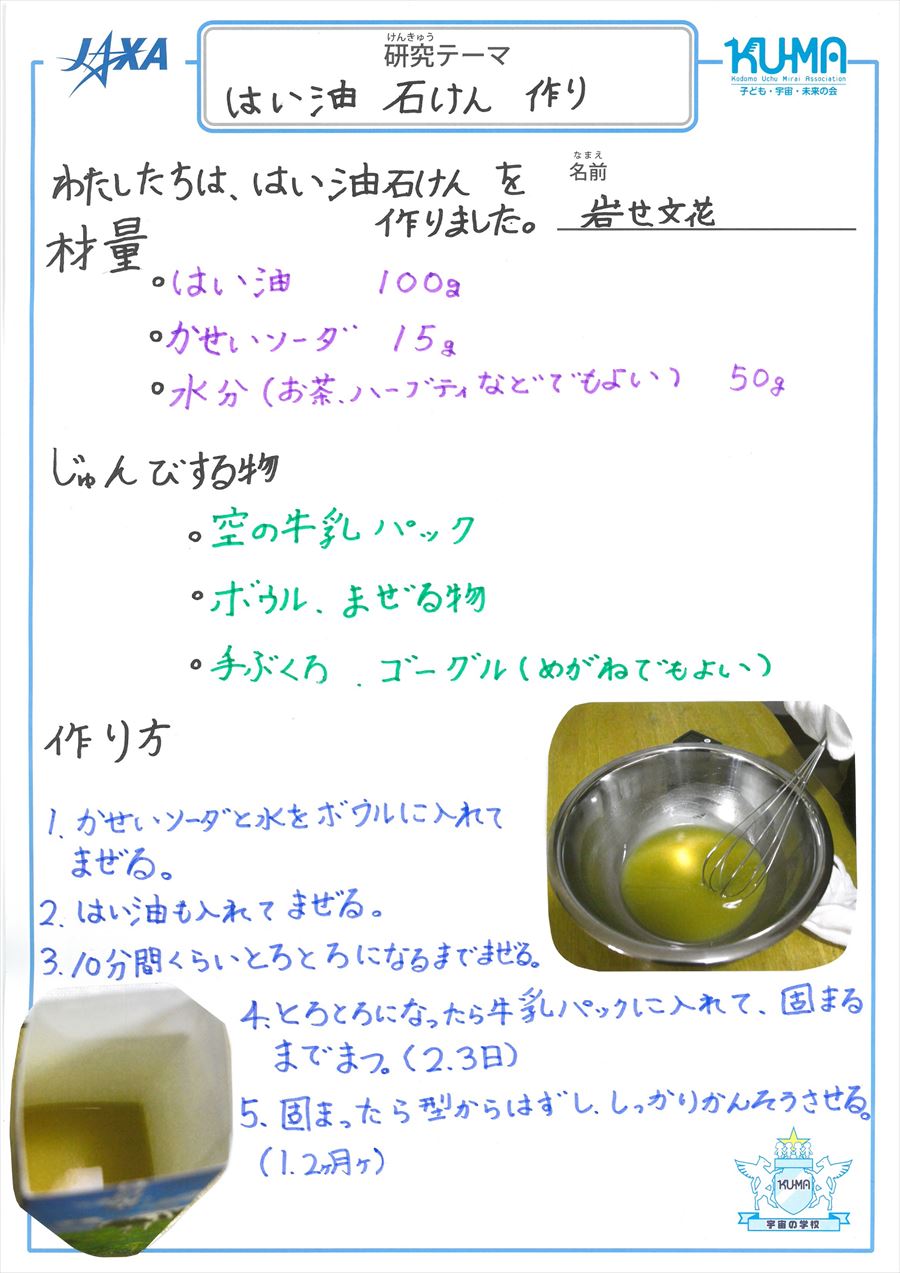 JAXA
けんきゅう
研究テーマ
はい油 石けん 作り
KU-MA
Kodomo Uchu Mirai Association
子ども・宇宙・未来の会
わたしたちは、はい油石けん を
作りました。
なまえ
名前
岩せ文花
材量
はい油 100g
かせいソーダ 15g
水分(お茶、ハーブティなどでもよい) 50g
じゅんびする物
空の牛乳パック
ボウル、まぜる物
手ぶくろ、ゴーグル(めがねでもよい)
作り方
1. かせいソーダと水をボウルに入れて
まぜる。
2. はい油も入れてまぜる。
3. 10分間くらいとろとろになるまでまぜる。
4. とろとろになったら牛乳パックに入れて、固まる
までまつ。(2.3日)
5. 固まったら型からはずし、しっかりかんそうさせる。
(1.2ヶ月ヶ)
KU-MA
宇宙の学校